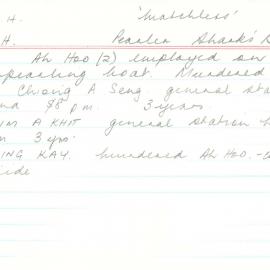 . H. 'Matchless'
H. Pearler Shark's B
Ah Hoo (2) employed on
pearling boat. Murdered
Chong A Seng. general sta
nd $8 p.m. 3 years
IM A KHIT general station h
m 3 yrs.
ING KAY. murdered Ah Hoo. -
ide